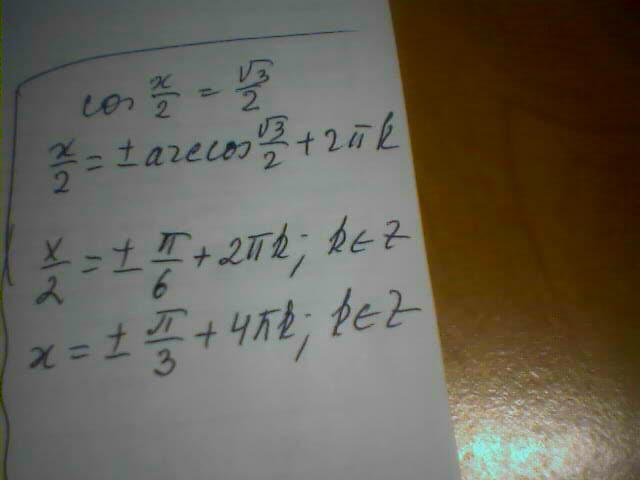 cos x/2 = √3/2
x/2 = ± arccos √3/2 + 2πk
x/2 = ± π/6 + 2πk; k ∈ Z
x = ± π/3 + 4πk; k ∈ Z